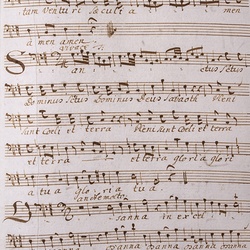 tam venturi sæculi a men
a men amen
San ctus ctus
Dominus Deus Dominus Deus sabaoth Pleni
sunt Cœli et terra Pleni sunt Cœli et terra
et terra et terra gloria gloria
a tua glo ria tua.
Osanna in excel
sanna osanna osanna